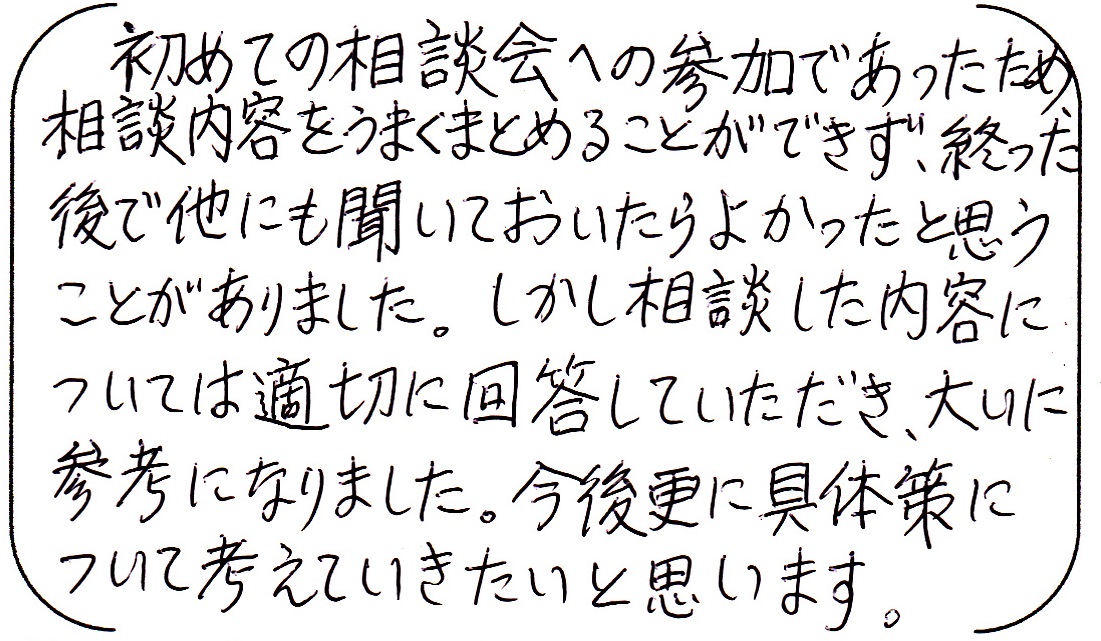 初めての相談会への参加であったため、
相談内容をうまくまとめることができず、終った
後で他にも聞いておいたらよかったと思う
ことがありました。しかし相談した内容に
ついては適切に回答していただき、大いに
参考になりました。今後更に具体策に
ついて考えていきたいと思います。